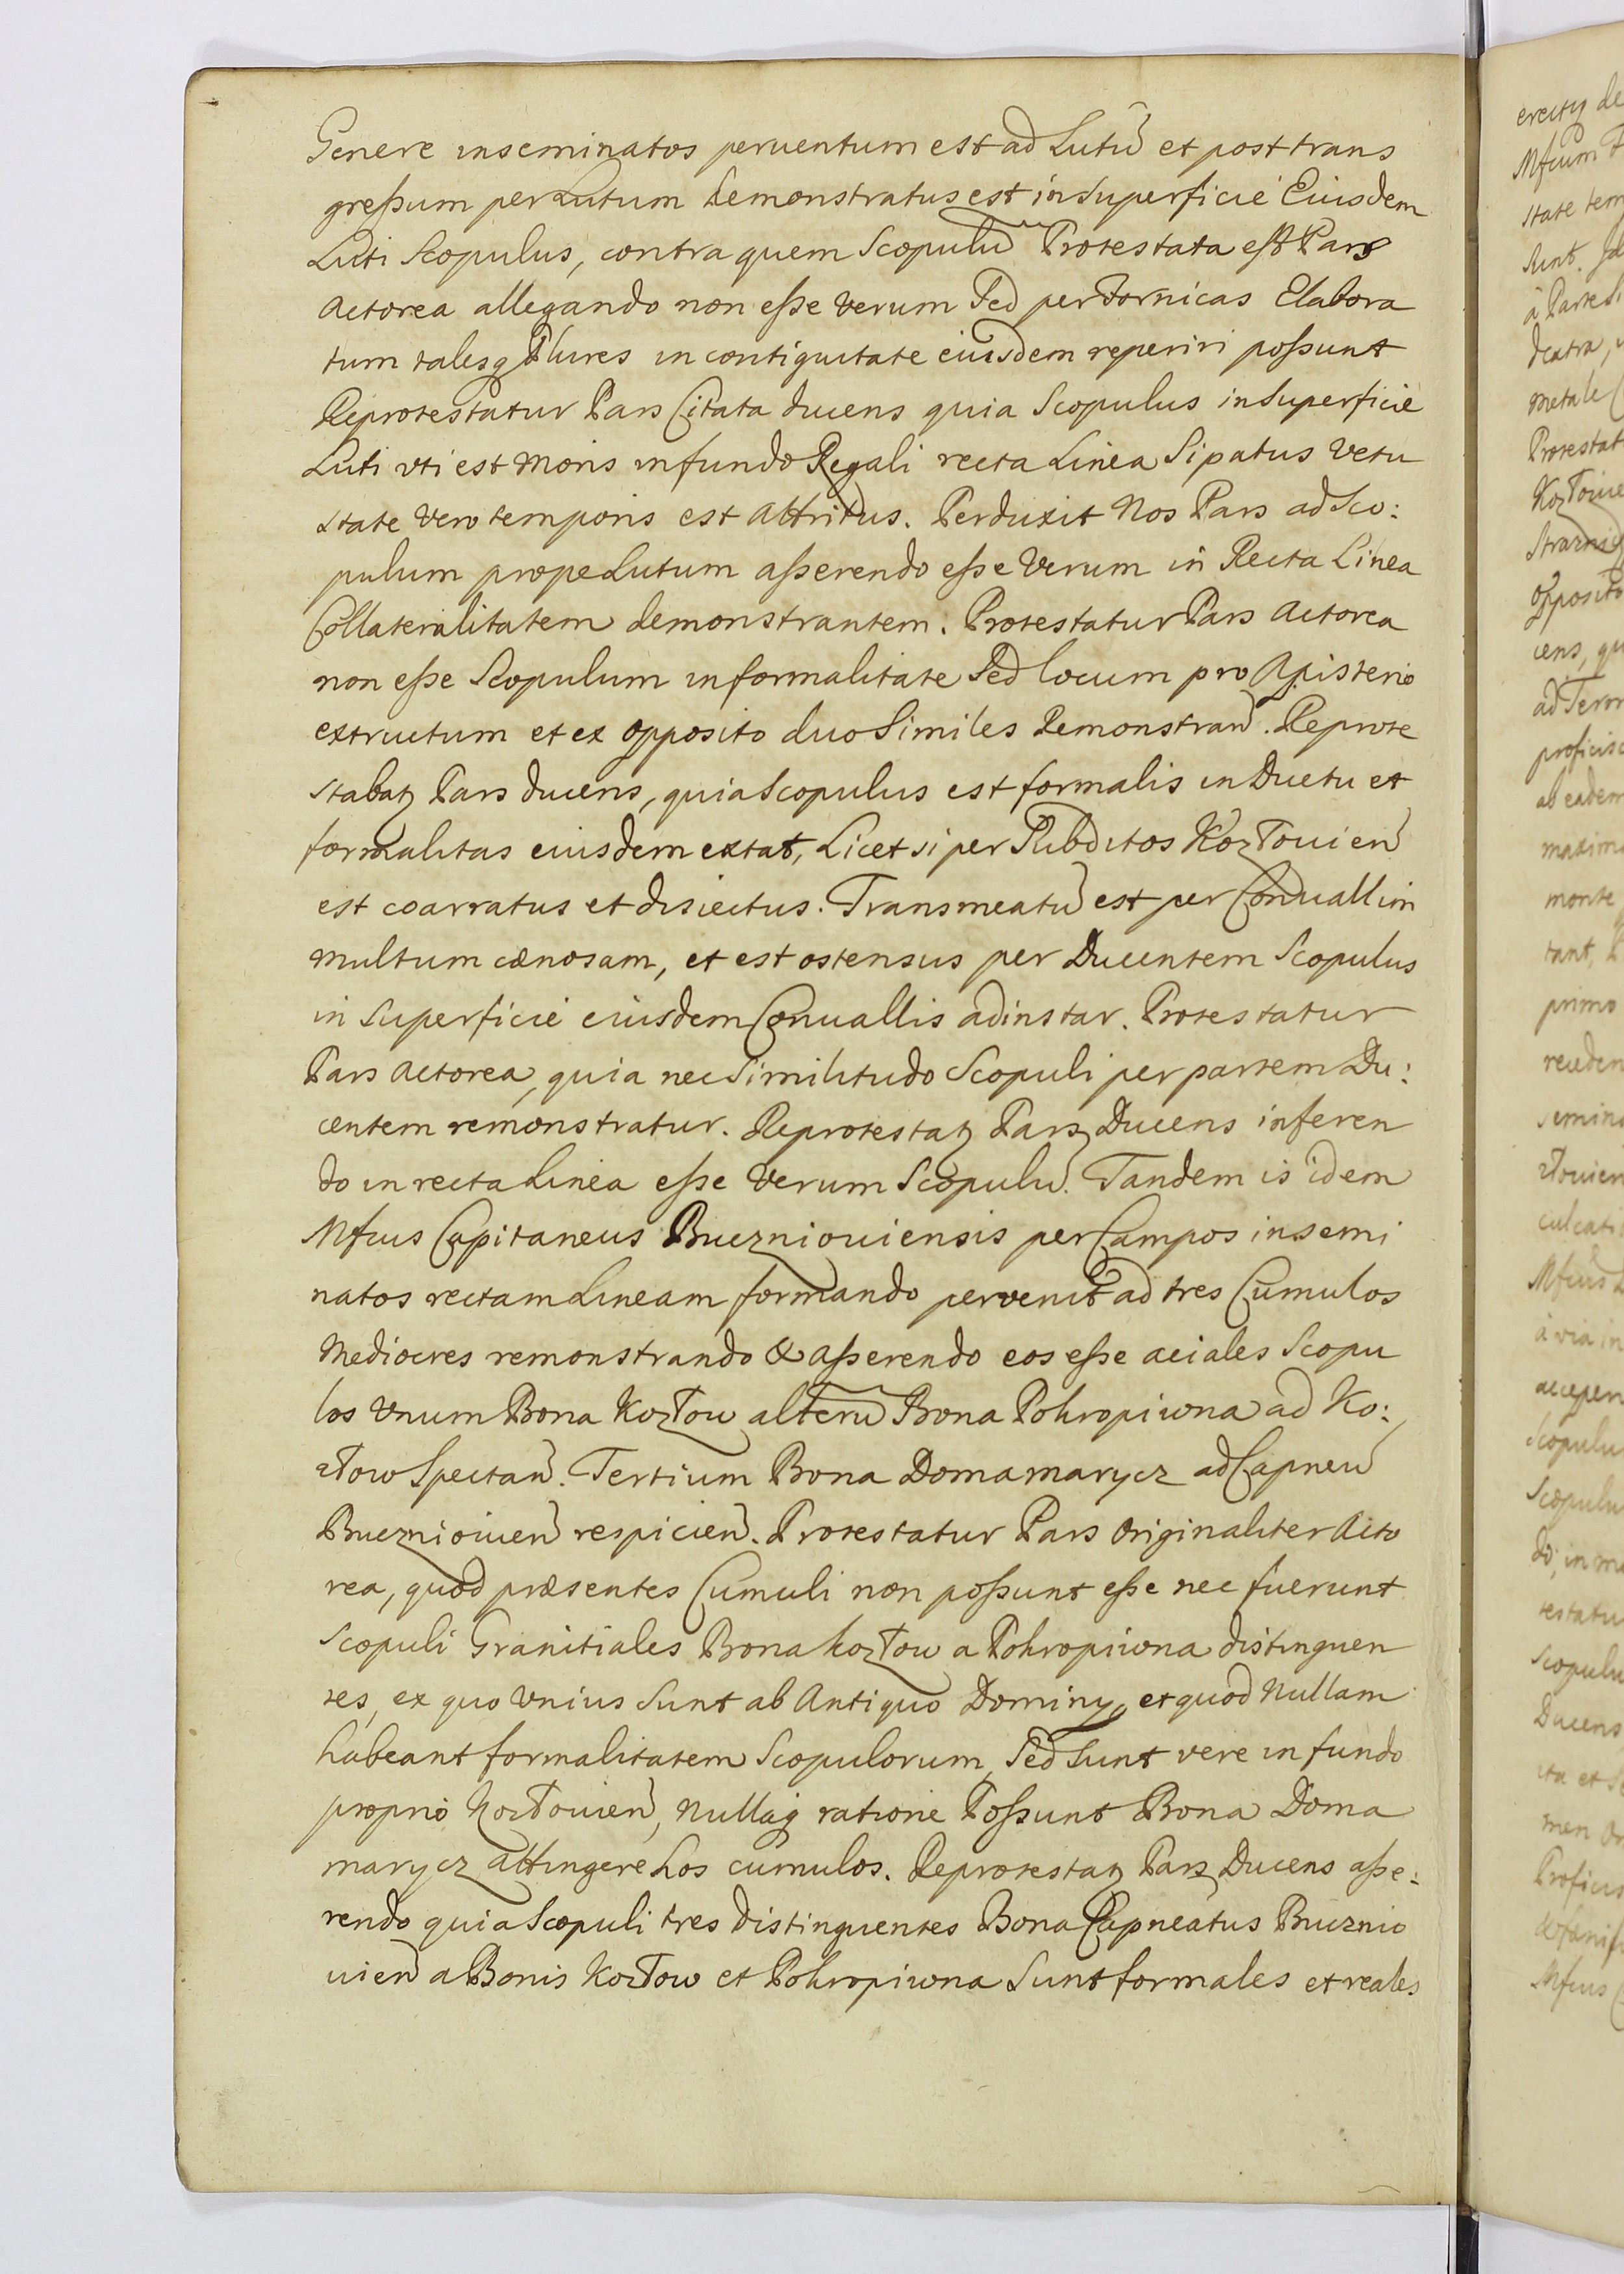 Genere inseminatos peruentum est ad Lutũ et post trans
greßum per Lutum demonstratus est in Superficie Eiusdem
Luti Scopulus, contra quem Scopulũ Protestata est Pars
Actorea allegando non eße verum Sed per Fornicas Elabora
tum talesq Plures in contiguitate eiusdem reperiri poßunt
Reprotestatur Pars Citata ducens quia Scopulus in Superficie
Luti vti est moris in fundo Regali recta Linea Sipatus vetu
state vero temporis est attritus. Perduxit Nos Pars ad Sco:
pulum prope Lutum aßerendo eße verum in Recta Linea
Collateralitatem demonstrantem. Protestatur Pars Actorea
non eße Scopulum in formalitate Sed locum pro Apisterio
extructum et ex opposito duo Similes Demonstran. Reprote
stabat Pars ducens, quia Scopulus est formalis in Ductu et
formalitas eiusdem extat, Licet si per Subditos Kozłouien
est coarratus et disiectus. Transmeatũ est per Conuallim
multum cænosam, et est ostensus per Ducentem Scopulus
in Superficie eiusdem Conuallis adinstar. Protestatur
Pars Actorea, quia nec Similitudo Scopuli per partem Du:
centem remonstratur. Reprotestat Pars Ducens inferen
do in recta Linea eße verum Scopulũ. Tandem is idem
Mfcus Capitaneus Bueznioviensis per Campos insemi
natos rectam Lineam formando pervenit ad tres Cumulos
Mediocres remonstrando & aßerendo eos eße aciales Scopu
los Vnum Bona Kozłow alterũ Bona Pohropiwna ad Ko:
złow Spectan. Tertium Bona Domamarycz ad Capneũ
Bueznioiuen respicien. Protestatur Pars Originaliter Acto
rea, quod præsentes Cumuli non poßunt eße nec fuerunt
Scopuli Granitiales Bona Kozłow a Pohropiwna distinguen
tes, ex quo Vnius Sunt ab Antiquo Dominy, et quod Nullam
habeant formalitatem Scopulorum, Sed Sunt vere in fundo
proprio Kozłouien, Nullaq ratione Poßunt Bona Doma
marycz attingere hos cumulos. Reprotestat Pars Ducens aße:
rendo quia Scopuli tres distinguentes Bona Capneatus Bueznio
uien a Bonis Kozłow et Pohropiwna Sunt formales et reales